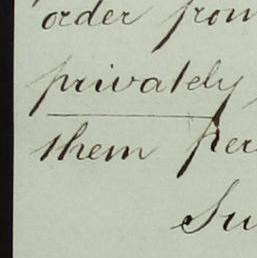 order from
privately
them per
Su